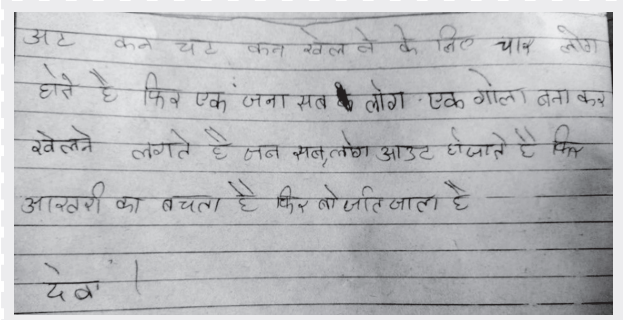 अट कन चट कन खेलने के लिए चार लोग
होते है फिर एक जना सब लोग एक गोला बना कर
खेलने लगते है जब सब लोग आउट होजाते है फिर
आखरी का बचता है फिर वो जीत जाता है
देवा